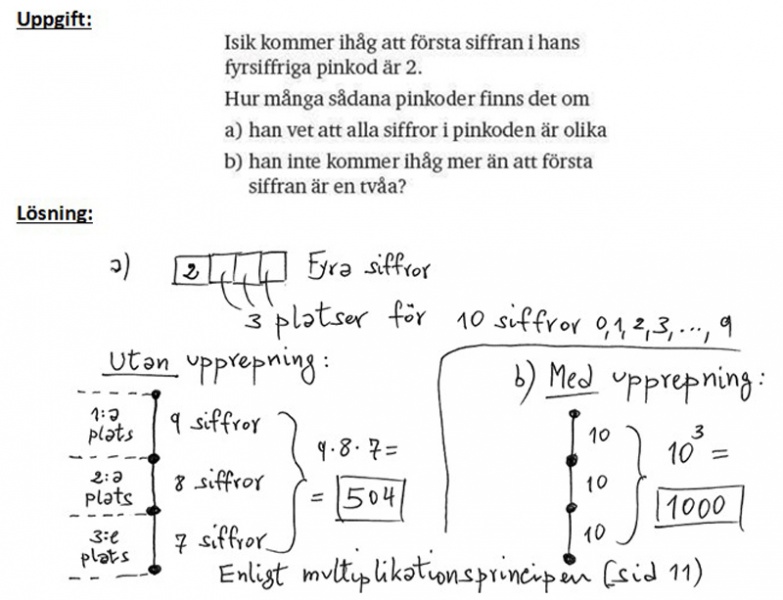 Uppgift:
Isik kommer ihåg att första siffran i hans
fyrsiffriga pinkod är 2.
Hur många sådana pinkoder finns det om
a) han vet att alla siffror i pinkoden är olika
b) han inte kommer ihåg mer än att första
siffran är en tvåa?
Lösning:
a) 2 Fyra siffror
3 platser för 10 siffror 0,1,2,3,..., 9
Utan upprepning:
1:a plats 9 siffror
2:a plats 8 siffror
3:e plats 7 siffror
9·8·7=
= 504
b) Med upprepning:
10
10
10
10³ =
1000
Enligt multiplikationsprincipen (sid 11)